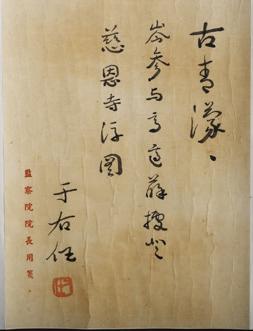 古青濛、
岑参与高適薛据登
慈恩寺浮图
于右任
監察院院長用箋